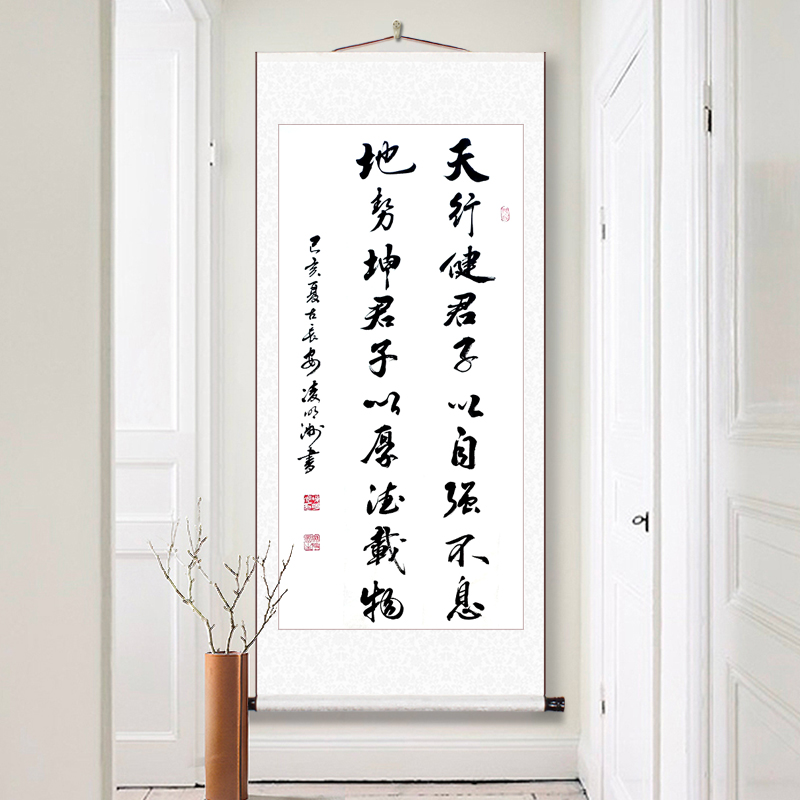 天行健君子以自强不息
地势坤君子以厚德载物
己亥夏古长安凌明洲书